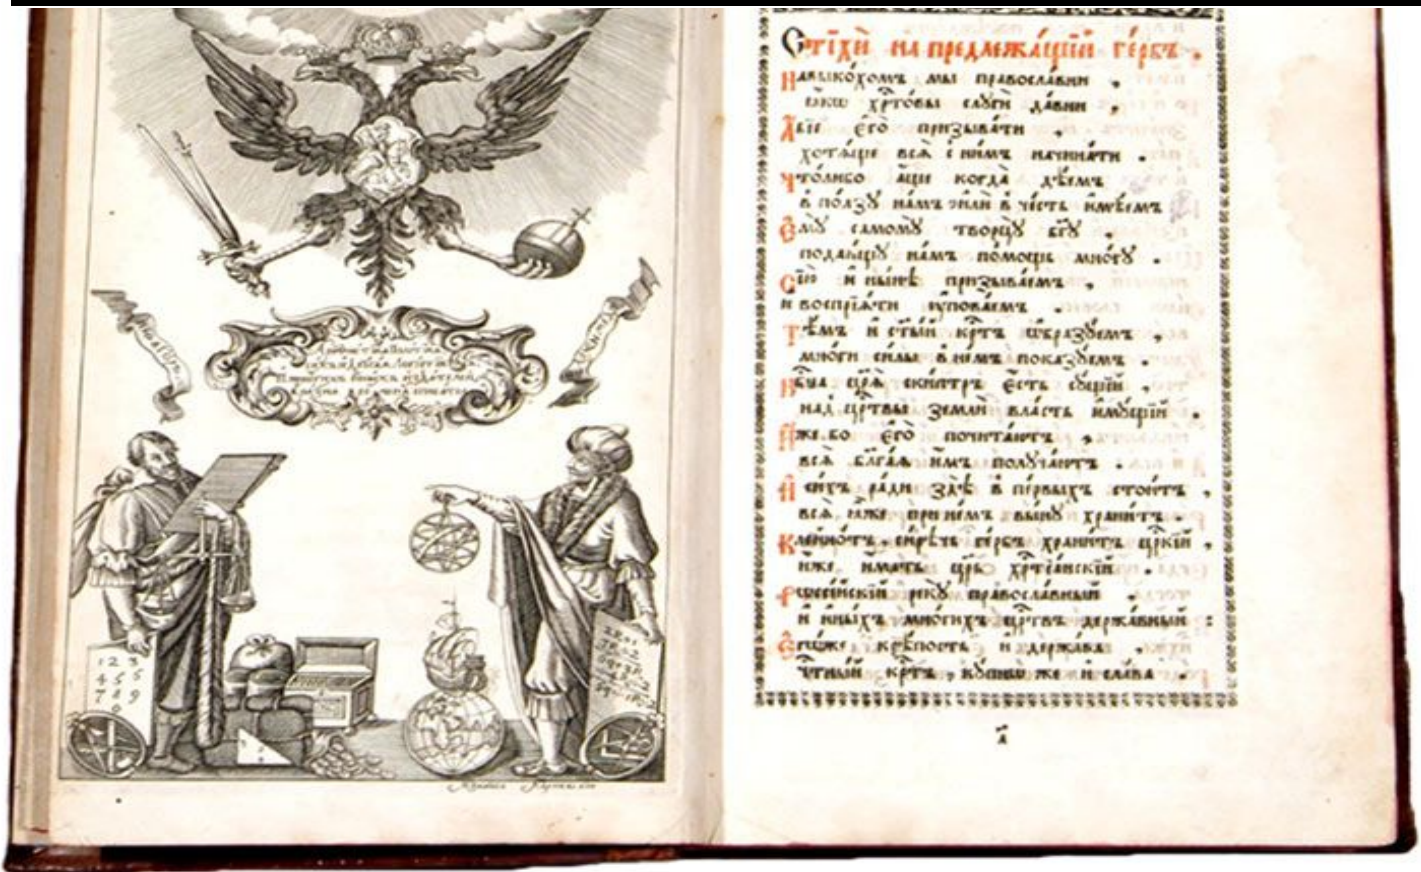 Пифагоръ
Архимед
1 2 3
4 5 6
7 8 9
0
Стїхѝ на предлежа́щїй ге́рбъ .
Навыко́хомъ мы правосла́вни ,
ꙗ҆́кѡ хр҇то́вы слꙋгѝ да́вни ,
А҆́бїе є҆го̀ призыва́ти ,
хотѧ́ще всѧ̀ с ни́мъ начина́ти .
Что́либо а҆́ще когда̀ дѣ́емъ
в по́лзꙋ на́мъ и҆лѝ в че́сть и҆мѣ́емъ
Є҆мꙋ̀ самомꙋ̀ творцꙋ̀ бг҃ꙋ ,
подаю́щꙋ на́мъ по́мощь мно́гꙋ .
Сїю̀ и҆ ны́нѣ призыва́емъ ,
и воспрїѧ́ти ᲂу҆пова́емъ .
Тѣ́мъ и҆ ст҃ы́й крⷭ҇тъ ѡ҆бразꙋ́емъ ,
мно́ги си́лы в не́мъ показꙋ́емъ .
над црⷭ҇твы землѝ вла́сть и҆мꙋ́щїй .
И҆̀же бо є҆го̀ почита́ютъ ,
всѧ̀ бл҃га́ѧ и҆́мъ полꙋча́ютъ .
И҆ си́хъ ра́ди здѣ̀ в пе́рвыхъ стои́тъ ,
всѧ̀ ꙗ҆̀же при не́мъ вы́нꙋ храни́тъ .
Клейно́тъ , си́рѣчь ге́рбъ храни́тъ цр҃кїй ,
и҆́же и҆́мать цр҃ь хрⷭ҇тїа́нскїй .
Рѡссі́йскїй рекꙋ̀ правосла́вный ,
и҆ и҆ны́хъ мно́гихъ црⷭ҇твъ держа́вный :
Є҆гѡ́же крѣ́пость и҆ держа́ва ,
чтⷭ҇ны́й крⷭ҇тъ , кꙋ́пнѡ же и҆ сла́ва .
а҃